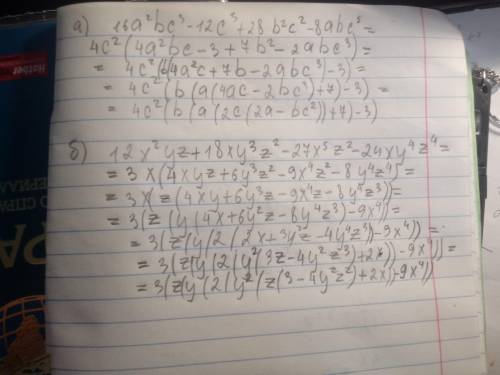 а) 16a²bc³-12c³+28b²c²-8abc⁵=
4c²(4a²bc-3+7b²-2abc³)=
= 4c²(b(4a²c+7b-2abc³)-3)=
= 4c²(b(a(4ac-2bc³)+7)-3)=
= 4c²(b(a(2c(2a-bc²))+7)-3)
б) 12x²yz+18xy³z²-27x⁵z²-24xy⁴z⁴=
= 3x(4xyz+6y³z²-9x⁴z²-8y⁴z⁴)=
= 3x z(4xy+6y³z-9x⁴z-8y⁴z³)=
= 3(z(y(4x+6y²z-8y⁴z³)-9x⁴)=
= 3(z(y(2(2x+3y²z-4y⁴z³))-9x⁴))=
= 3(z(y(2(y²(3z-4y²z³)+2x))-9x⁴))=
= 3(z(y(2(y²(z(3-4y²z²)+2x))-9x⁴))
Hatber